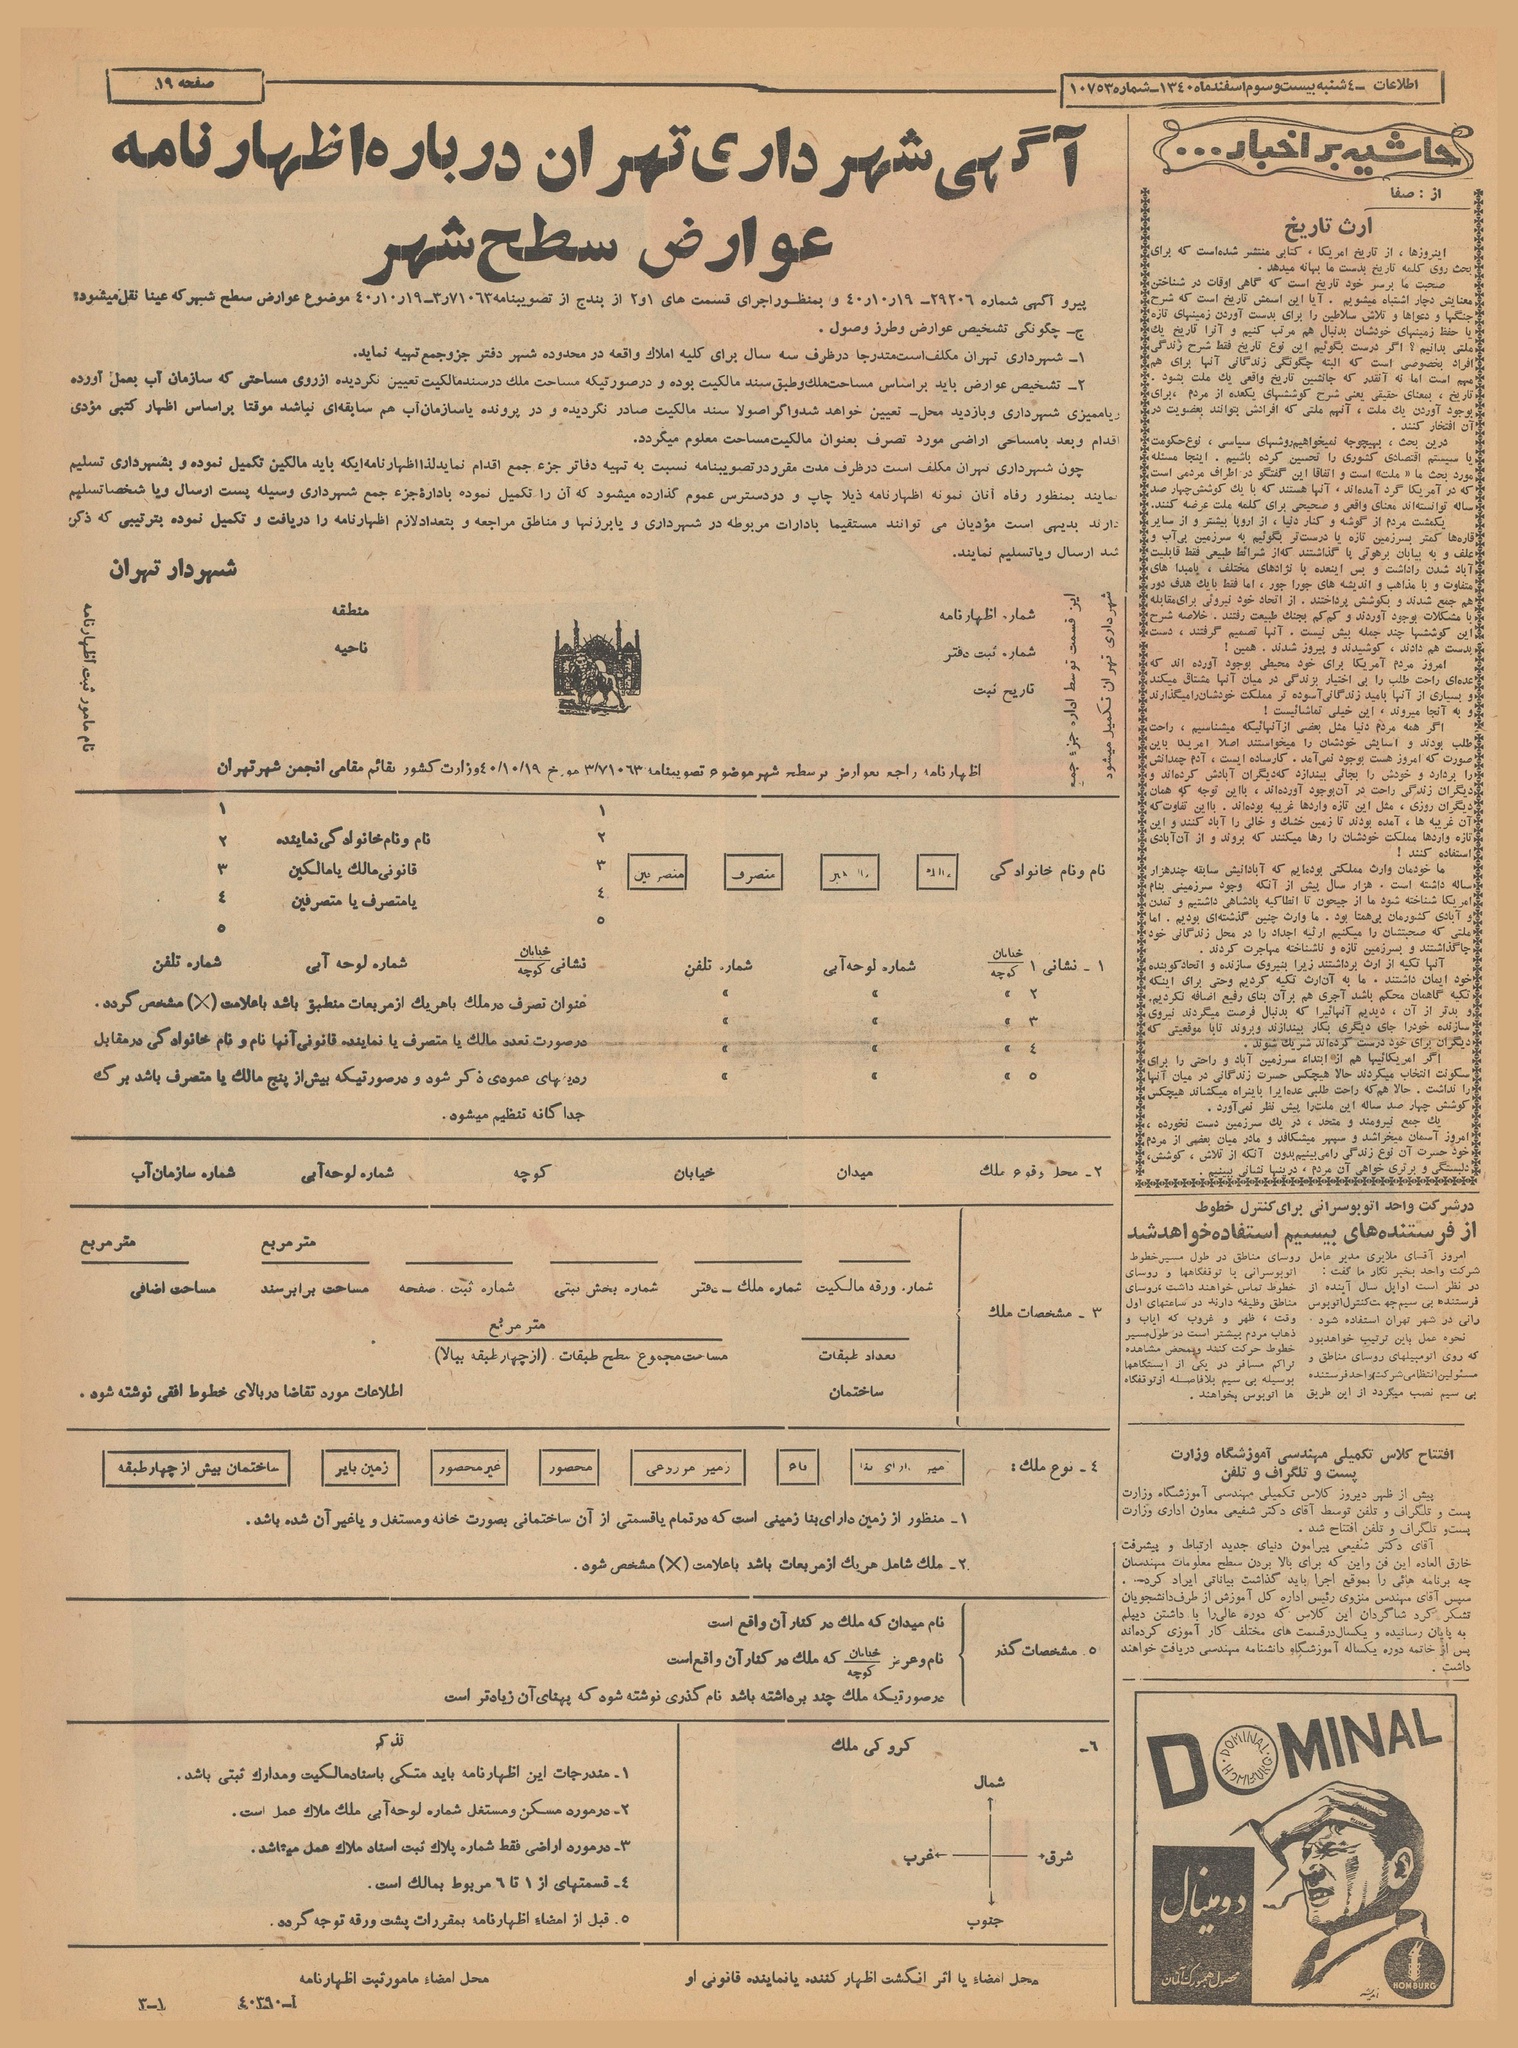 اطلاعات - ٤شنبه بیست و سوم اسفندماه ۱۳٤۰ - شماره ۱۰۷۵۳
صفحه ۱۹
آگهی شهرداری تهران درباره اظهارنامه
عوارض سطح شهر
پیرو آگهی شماره ۲۹۲۰٦ - ۱۹ر۱۰ر٤۰ و بمنظور اجرای قسمت های ۱و۲ از بندج از تصویبنامه ۷۱۰٦۳ر۳-۱۹ر۱۰ر٤۰ موضوع عوارض سطح شهر که عینا نقل میشود:
ج- چگونگی تشخیص عوارض وطرز وصول .
۱- شهرداری تهران مکلف است متدرجا درظرف سه سال برای کلیه املاك واقعه در محدوده شهر دفتر جزوجمع تهیه نماید.
۲- تشخیص عوارض باید براساس مساحت ملك وطبق سند مالکیت بوده و درصورتیکه مساحت ملك درسند مالکیت تعیین نگردیده ازروی مساحتی که سازمان آب بعمل آورده
ویاممیزی شهرداری وبازدید محل- تعیین خواهد شد واگر اصولا سند مالکیت صادر نگردیده و در پرونده یاسازمان آب هم سابقه‌ای نباشد موقتا براساس اظهار کتبی مؤدی
اقدام وبعد بامساحی اراضی مورد تصرف بعنوان مالکیت مساحت معلوم میگردد.
چون شهرداری تهران مکلف است درظرف مدت مقرر درتصویبنامه نسبت به تهیه دفاتر جزء جمع اقدام نماید لذا اظهارنامه ایکه باید مالکین تکمیل نموده و بشهرداری تسلیم
نمایند بمنظور رفاه آنان نمونه اظهارنامه ذیلا چاپ و دردسترس عموم گذارده میشود که آن را تکمیل نموده بادارۀ جزء جمع شهرداری وسیله پست ارسال ویا شخصا تسلیم
دارند بدیهی است مؤدیان می توانند مستقیما بادارات مربوطه در شهرداری و یابرزنها و مناطق مراجعه و بتعداد لازم اظهارنامه را دریافت و تکمیل نموده بترتیبی که ذکر
شد ارسال ویاتسلیم نمایند.
شهردار تهران
این قسمت توسط اداره جزء جمع
شهرداری تهران تکمیل میشود
شماره اظهارنامه
شماره ثبت دفتر
تاریخ ثبت
منطقه
ناحیه
نام مامور ثبت اظهارنامه
اظهارنامه راجع بعوارض برسطح شهر موضوع تصویبنامه ۳/۷۱۰٦۳ مورخ ٤۰/۱۰/۱۹ وزارت کشور بقائم مقامی انجمن شهر تهران
نام ونام خانوادگی
مالك
مالکین
متصرف
متصرفین
۱
۲
۳
٤
۵
نام ونام خانوادگی نماینده
قانونی مالك یامالکین
یامتصرف یا متصرفین
۱
۲
۳
٤
۵
۱ - نشانی ۱ خیابان کوچه شماره لوحه آبی شماره تلفن
۲ » » »
۳ » » »
٤ » » »
۵ » » »
نشانی خیابان کوچه شماره لوحه آبی شماره تلفن
عنوان تصرف درملك باهریك ازمربعات منطبق باشد باعلامت (X) مشخص گردد.
درصورت تعدد مالك یا متصرف یا نماینده قانونی آنها نام و نام خانوادگی درمقابل
ردیفهای عمودی ذکر شود و درصورتیکه بیش از پنج مالك یا متصرف باشد برك
جداگانه تنظیم میشود.
۲- محل وقوع ملك میدان خیابان کوچه شماره لوحه آبی شماره سازمان آب
۳ - مشخصات ملك
متر مربع متر مربع
شماره ورقه مالکیت شماره ملك - دفتر شماره بخش ثبتی شماره ثبت . صفحه مساحت برابر سند مساحت اضافی
متر مربع
تعداد طبقات مساحت مجموع سطح طبقات . (از چهار طبقه ببالا)
ساختمان اطلاعات مورد تقاضا دربالای خطوط افقی نوشته شود .
٤ - نوع ملك:
زمین دارای بنا
باغ
زمین مزروعی
محصور
غیرمحصور
زمین بایر
ساختمان بیش از چهارطبقه
۱- منظور از زمین دارای بنا زمینی است که درتمام یاقسمتی از آن ساختمانی بصورت خانه ومستغل و یاغیر آن شده باشد.
۲- ملك شامل هریك ازمربعات باشد باعلامت (X) مشخص شود .
۵. مشخصات گذر
نام میدان که ملك در کنار آن واقع است
نام وعرض خیابان کوچه که ملك در کنار آن واقع است
درصورتیکه ملك چند برداشته باشد نام گذری نوشته شود که پهنای آن زیادتر است
٦-
کروکی ملك
شمال
شرق
غرب
جنوب
تذکر
۱- مندرجات این اظهارنامه باید متکی باسناد مالکیت ومدارك ثبتی باشد.
۲- درمورد مسکن ومستغل شماره لوحه آبی ملك ملاك عمل است.
۳- درمورد اراضی فقط شماره پلاك ثبت اسناد ملاك عمل میباشد.
٤- قسمتهای از ۱ تا ٦ مربوط بمالك است.
۵. قبل از امضاء اظهارنامه بمقررات پشت ورقه توجه گردد.
محل امضاء یا اثر انگشت اظهار کننده یانماینده قانونی او
محل امضاء مامور ثبت اظهارنامه
آ-٤۰۳۹۰
۳-۱
حاشیه بر اخبار...
از : صفا
ارث تاریخ
اینروزها ، از تاریخ امریکا ، کتابی منتشر شده‌است که برای
بحث روی کلمه تاریخ بدست ما بهانه میدهد .
صحبت ما برسر خود تاریخ است که گاهی اوقات در شناختن
معنایش دچار اشتباه میشویم . آیا این اسمش تاریخ است که شرح
جنگها و دعواها و تلاش سلاطین را برای بدست آوردن زمینهای تازه
یا حفظ زمینهای خودشان بدنبال هم مرتب کنیم و آنرا تاریخ یك
ملتی بدانیم ؟ اگر درست بگوئیم این نوع تاریخ فقط شرح زندگی
افراد بخصوصی است که البته چگونگی زندگانی آنها برای هم
مهم است اما نه آنقدر که جانشین تاریخ واقعی یك ملت بشود .
تاریخ ، بمعنای حقیقی یعنی شرح کوششهای یکعده از مردم ،برای
بوجود آوردن یك ملت ، آنهم ملتی که افرادش بتوانند بعضویت در
آن افتخار کنند .
درین بحث ، بهیچوجه نمیخواهیم روشهای سیاسی ، نوع حکومت
یا سیستم اقتصادی کشوری را تحسین کرده باشیم . اینجا مسئله
مورد بحث ما « ملت» است و اتفاقا این گفتگو در اطراف مردمی است
که در آمریکا گرد آمده‌اند ، آنها هستند که با یك کوشش چهار صد
ساله توانسته‌اند معنای واقعی و صحیحی برای کلمه ملت عرضه کنند.
یکمشت مردم از گوشه و کنار دنیا ، از اروپا بیشتر و از سایر
قاره‌ها کمتر بسرزمین تازه یا درست‌تر بگوئیم به سرزمین بی‌آب و
علف و به بیابان برهوتی پا گذاشتند که‌از شرائط طبیعی فقط قابلیت
آباد شدن راداشت و پس اینعده با نژادهای مختلف ، باعبدا های
متفاوت و با مذاهب و اندیشه های جورا جور ، اما فقط بایك هدف دور
هم جمع شدند و بکوشش پرداختند . از اتحاد خود نیروئی برای مقابله
با مشکلات بوجود آوردند و کم‌کم بجنك طبیعت رفتند . خلاصه شرح
این کوششها چند جمله بیش نیست . آنها تصمیم گرفتند ، دست
بدست هم دادند ، کوشیدند و پیروز شدند . همین !
امروز مردم آمریکا برای خود محیطی بوجود آورده اند که
عده‌ای راحت طلب را بی اختیار بزندگی در میان آنها مشتاق میکند
و بسیاری از آنها بامید زندگانی آسوده تر مملکت خودشان رامیگذارند
و به آنجا میروند ، این خیلی تماشائیست !
اگر همه مردم دنیا مثل بعضی ازآنهائیکه میشناسیم ، راحت
طلب بودند و آسایش خودشان را میخواستند اصلا امریکا باین
صورت که امروز هست بوجود نمی‌آمد . کارساده ایست ، آدم چمدانش
را بردارد و خودش را بجائی بیندازد که‌دیگران آبادش کرده‌اند و
دیگران زندگی راحت در آن بوجود آورده‌اند ، بااین توجه که همان
دیگران روزی ، مثل این تازه واردها غریبه بوده‌اند . بااین تفاوت‌که
آن غریبه ها ، آمده بودند تا زمین خشك و خالی را آباد کنند و این
تازه واردها مملکت خودشان را رها میکنند که بروند و از آن آبادی
استفاده کنند !
ما خودمان وارث مملکتی بوده‌ایم که آبادانیش سابقه چندهزار
ساله داشته است . هزار سال پیش از آنکه وجود سرزمینی بنام
امریکا شناخته شود ما از جیحون تا انطاکیه پادشاهی داشتیم و تمدن
و آبادی کشورمان بی‌همتا بود . ما وارث چنین گذشته‌ای بودیم . اما
ملتی که صحبتشان را میکنیم ارثیه اجداد را در محل زندگانی خود
جاگذاشتند و بسرزمین تازه و ناشناخته مهاجرت کردند .
آنها تکیه از ارث برداشتند زیرا بنیروی سازنده و اتحاد کوبنده
خود ایمان داشتند . ما به آن‌ارث تکیه کردیم وحتی برای اینکه
تکیه گاهمان محکم باشد آجری هم برآن بنای رفیع اضافه نکردیم.
و بدتر از آن ، دیدیم آنهائیرا که بدنبال فرصت میگردند نیروی
سازنده خودرا جای دیگری بکار بیندازند وبروند تابا موقعیتی که
دیگران برای خود درست کرده‌اند شریك شوند .
اگر امریکائیها هم از ابتداء سرزمین آباد و راحتی را برای
سکونت انتخاب میکردند حالا هیچکس حسرت زندگانی در میان آنها
را نداشت . حالا هم‌که راحت طلبی عده‌ایرا باینراه میکشاند هیچکس
کوشش چهار صد ساله این ملت‌را پیش نظر نمی‌آورد .
یك جمع نیرومند و متحد ، در یك سرزمین دست نخورده ،
امروز آسمان میخراشد و سپهر میشکافد و مادر میان بعضی از مردم
خود حسرت آن نوع زندگی رامی‌بینیم بدون آنکه از تلاش ، کوشش،
دلبستگی و برتری خواهی آن مردم ، درینها نشانی ببینیم .
درشرکت واحد اتوبوسرانی برای کنترل خطوط
از فرستنده‌های بیسیم استفاده خواهد شد
امروز آقای ملایری مدیر عامل
شرکت واحد بخبر نگار ما گفت :
در نظر است اوایل سال آینده از
فرستنده بی سیم جهت کنترل اتوبوس
رانی در شهر تهران استفاده شود .
نحوه عمل باین ترتیب خواهدبود
که روی اتومبیلهای روسای مناطق و
مسئولین انتظامی شرکت واحد فرستنده
بی سیم نصب میگردد از این طریق
روسای مناطق در طول مسیرخطوط
اتوبوسرانی با توقفگاهها و روسای
خطوط تماس خواهند داشت ،روسای
مناطق وظیفه دارند در ساعتهای اول
وقت ، ظهر و غروب که ایاب و
ذهاب مردم بیشتر است در طول مسیر
خطوط حرکت کنند وبمحض مشاهده
تراکم مسافر در یکی از ایستگاهها
بوسیله بی سیم بلافاصله ازتوقفگاه
ها اتوبوس بخواهند .
افتتاح کلاس تکمیلی مهندسی آموزشگاه وزارت
پست و تلگراف و تلفن
پیش از ظهر دیروز کلاس تکمیلی مهندسی آموزشگاه وزارت
پست و تلگراف و تلفن توسط آقای دکتر شفیعی معاون اداری وزارت
پست‌و تلگراف و تلفن افتتاح شد .
آقای دکتر شفیعی پیرامون دنیای جدید ارتباط و پیشرفت
خارق العاده این فن واین که برای بالا بردن سطح معلومات مهندسان
چه برنامه هائی را بموقع اجرا باید گذاشت بیاناتی ایراد کرد .
سپس آقای مهندس منزوی رئیس اداره کل آموزش از طرف دانشجویان
تشکر کرد شاگردان این کلاس که دوره عالی‌را با داشتن دیپلم
به پایان رسانیده و یکسال درقسمت های مختلف کار آموزی کرده‌اند
پس از خاتمه دوره یکساله آموزشگاه دانشنامه مهندسی دریافت خواهند
داشت .
DOMINAL
DOMINAL HOMBURG
دومینال
محصول همبورگ آلمان
HOMBURG